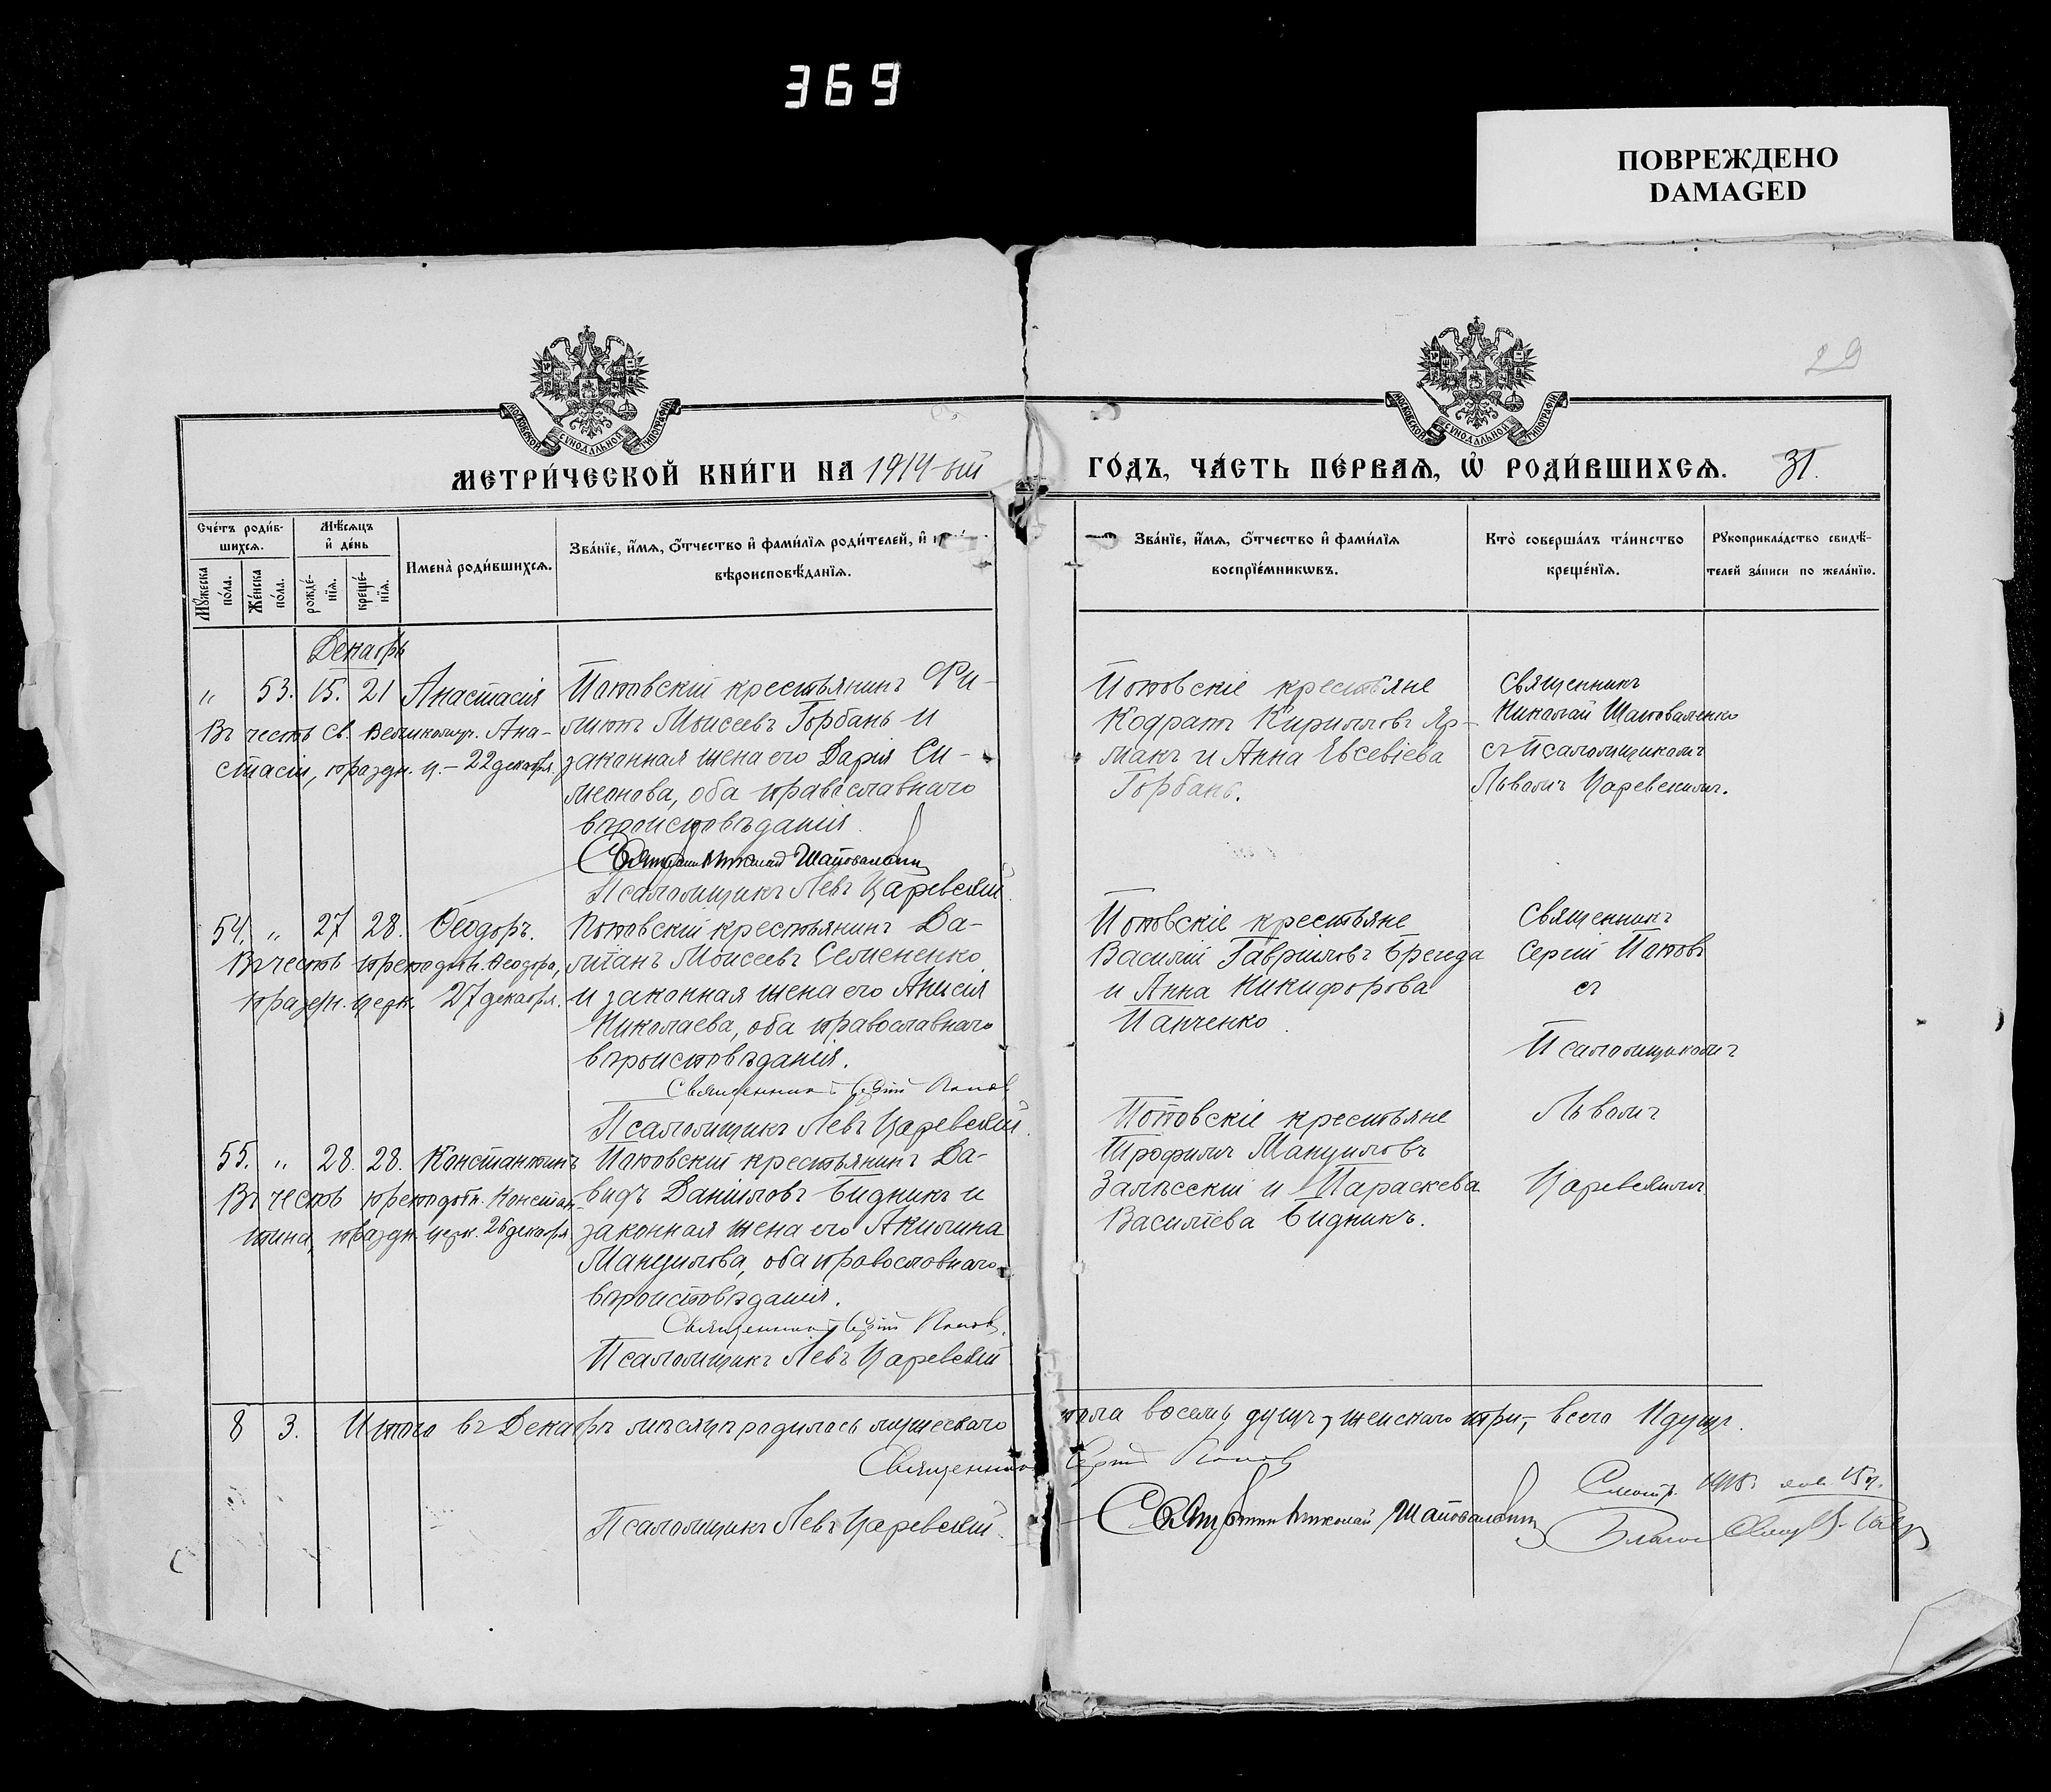 369
ПОВРЕЖДЕНО
DAMAGED
29
МОСКОВСКОЙ СѴНОДАЛЬНОЙ ТИПОГРАФІИ
МОСКОВСКОЙ СѴНОДАЛЬНОЙ ТИПОГРАФІИ
МЕТРИ́ЧЕСКОЙ КНИ́ГИ НА 1914-ый
ГО́ДЪ, ЧА́СТЬ ПЕ́РВАЯ, Ѡ҆ РОДИ́ВШИХСЯ. 31.
Сче́тъ роди́в-
шихся.
Му́жеска
по́ла.
Же́нска
по́ла.
Мѣ́сяцъ
и҆ де́нь
рожде́-
нїя.
креще́-
нїя.
Имена̀ роди́вшихся.
Зва́нїе, и҆́мя, ѻ҆́тчество и҆ фами́лїя роди́телей, и҆
вѣроисповѣ́данїя.
Зва́нїе, и҆́мя, ѻ҆́тчество и҆ фами́лїя
воспрїе́мникѡвъ.
Кто̀ соверша́лъ та́инство
креще́нїя.
Рꙋкоприкла́дство свидѣ́-
телей за́писи по жела́нїю.
Декабрь
„ 53. 15. 21 Анастасія
Въ честь Св. Великомуч. Ана-
стасіи, праздн. ц. – 22 декабря.
Поповскій крестьянинъ Фи-
липп Моисеевъ Горбань и
законная жена его Дарія Си-
меонова, оба православнаго
вѣроисповѣданія.
Священникъ Николай Шаповаленко
Псаломщикъ Левъ Царевскій.
Поповскіе крестьяне
Кодрат Кирилловъ Яр-
макъ и Анна Евсевіева
Горбань.
Священникъ
Николай Шаповаленко
съ Псаломщикомъ
Львомъ Царевскимъ.
54. „ 27 28. Ѳеодоръ.
Въ честь преподобн. Ѳеодора,
праздн. церк. 27 декабря.
Поповскій крестьянинъ Да-
міанъ Моисеевъ Семененко
и законная жена его Анисія
Николаева, оба православнаго
вѣроисповѣданія.
Священникъ Сергій Попов
Псаломщикъ Левъ Царевскій.
Поповскіе крестьяне
Василій Гавріиловъ Брегеда
и Анна Никифорова
Панченко.
Священникъ
Сергій Поповъ
съ
Псаломщикомъ
Львомъ
Царевскимъ
55. „ 28. 28. Константинъ
Въ честь преподобн. Констан-
тина, праздн. церк. 26 декабря
Поповскій крестьянинъ Да-
видъ Даніиловъ Бидникъ и
законная жена его Акилина
Мануилова, оба православнаго
вѣроисповѣданія.
Священникъ Сергій Попов.
Псаломщикъ Левъ Царевскій
Поповскіе крестьяне
Трофимъ Мануиловъ
Залѣсскій и Параскева
Василіева Бидникъ.
8 3. Итого въ Декабрѣ мѣсяцѣ родилось мужескаго пола восемь душъ, женскаго три, – всего 11 душъ.
Священникъ Сергій Попов
Псаломщикъ Левъ Царевскій.
Священникъ Николай Шаповаленко
Смотр. 1915 янв. 15 д.